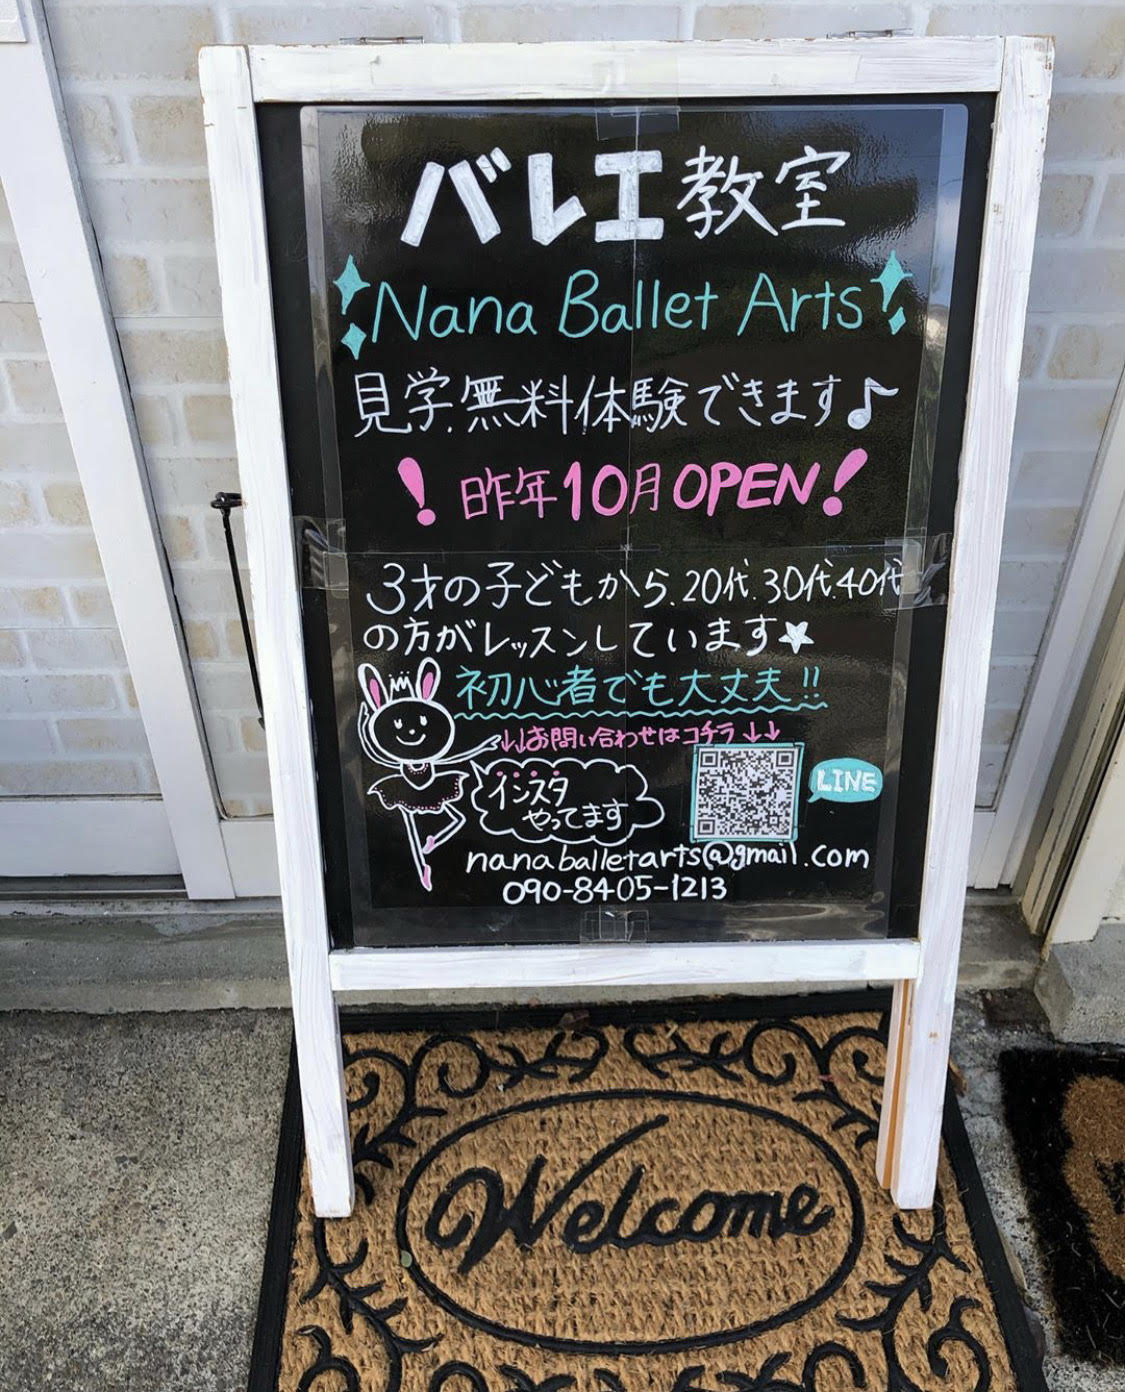 バレエ教室
Nana Ballet Arts
見学.無料体験できます♪
!昨年10月OPEN!
3才の子どもから.20代.30代.40代
の方がレッスンしています★
初心者でも大丈夫!!
↓↓お問い合わせはコチラ↓↓
インスタ
やってます
LINE
nanaballetarts@gmail.com
090-8405-1213
Welcome